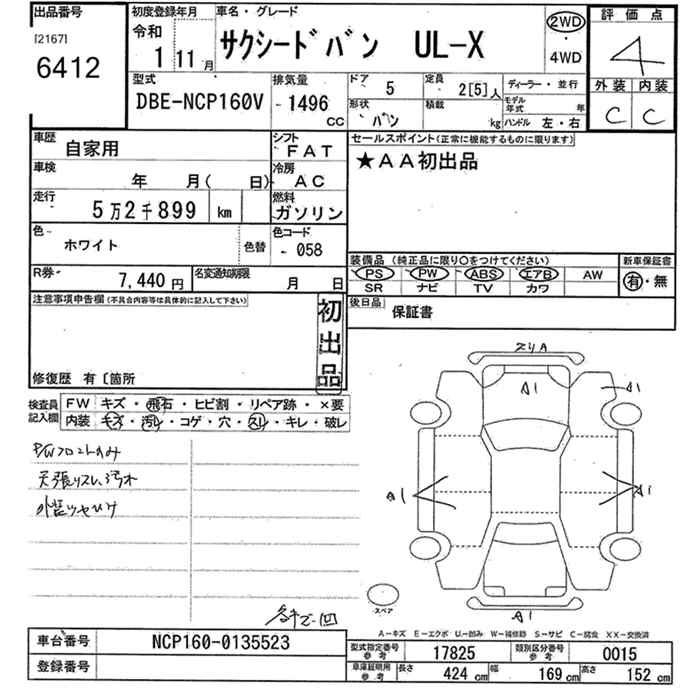 出品番号
[2167]
6412
初度登録年月
令和
1 11月
車名・グレード
サクシードバン UL-X
2WD
4WD
評価点
4
外装 内装
C C
型式
DBE-NCP160V
排気量
1496
CC
ドア 5
定員 2[5]人
ディーラー・並行
形状 バン
積載 kg
モデル年式 年
ハンドル 左・右
車歴
自家用
シフト
FAT
セールスポイント(正常に機能するものに限ります)
★AA初出品
車検
年 月( 日)
冷房
AC
走行
5万2千899 km
燃料
ガソリン
色
ホワイト
色替
色コード
058
装備品 (純正品に限り〇をつけてください)
新車保証書
PS PW ABS エアB AW
SR ナビ TV カワ
有・無
R券
7,440円
名変通知期限
月 日
後日品
保証書
注意事項申告欄(不具合内容等は具体的に記入して下さい)
初出品
修復歴 有〔箇所
検査員
記入欄
FW キズ・飛石・ヒビ割・リペア跡・×要
内装 キズ・汚レ・コゲ・穴・スレ・キレ・破レ
P/Wフロントのみ
天張リスレ、汚れ
A1
A1
A1
A1
A1
スペア
A-キズ E-エクボ U-凹み W-補修跡 S-サビ C-腐食 XX-交換済
車台番号
NCP160-0135523
登録番号
型式指定番号
参考
17825
類別区分番号
参考
0015
車庫証明用
参考
長さ 424 cm
幅 169 cm
高さ 152 cm